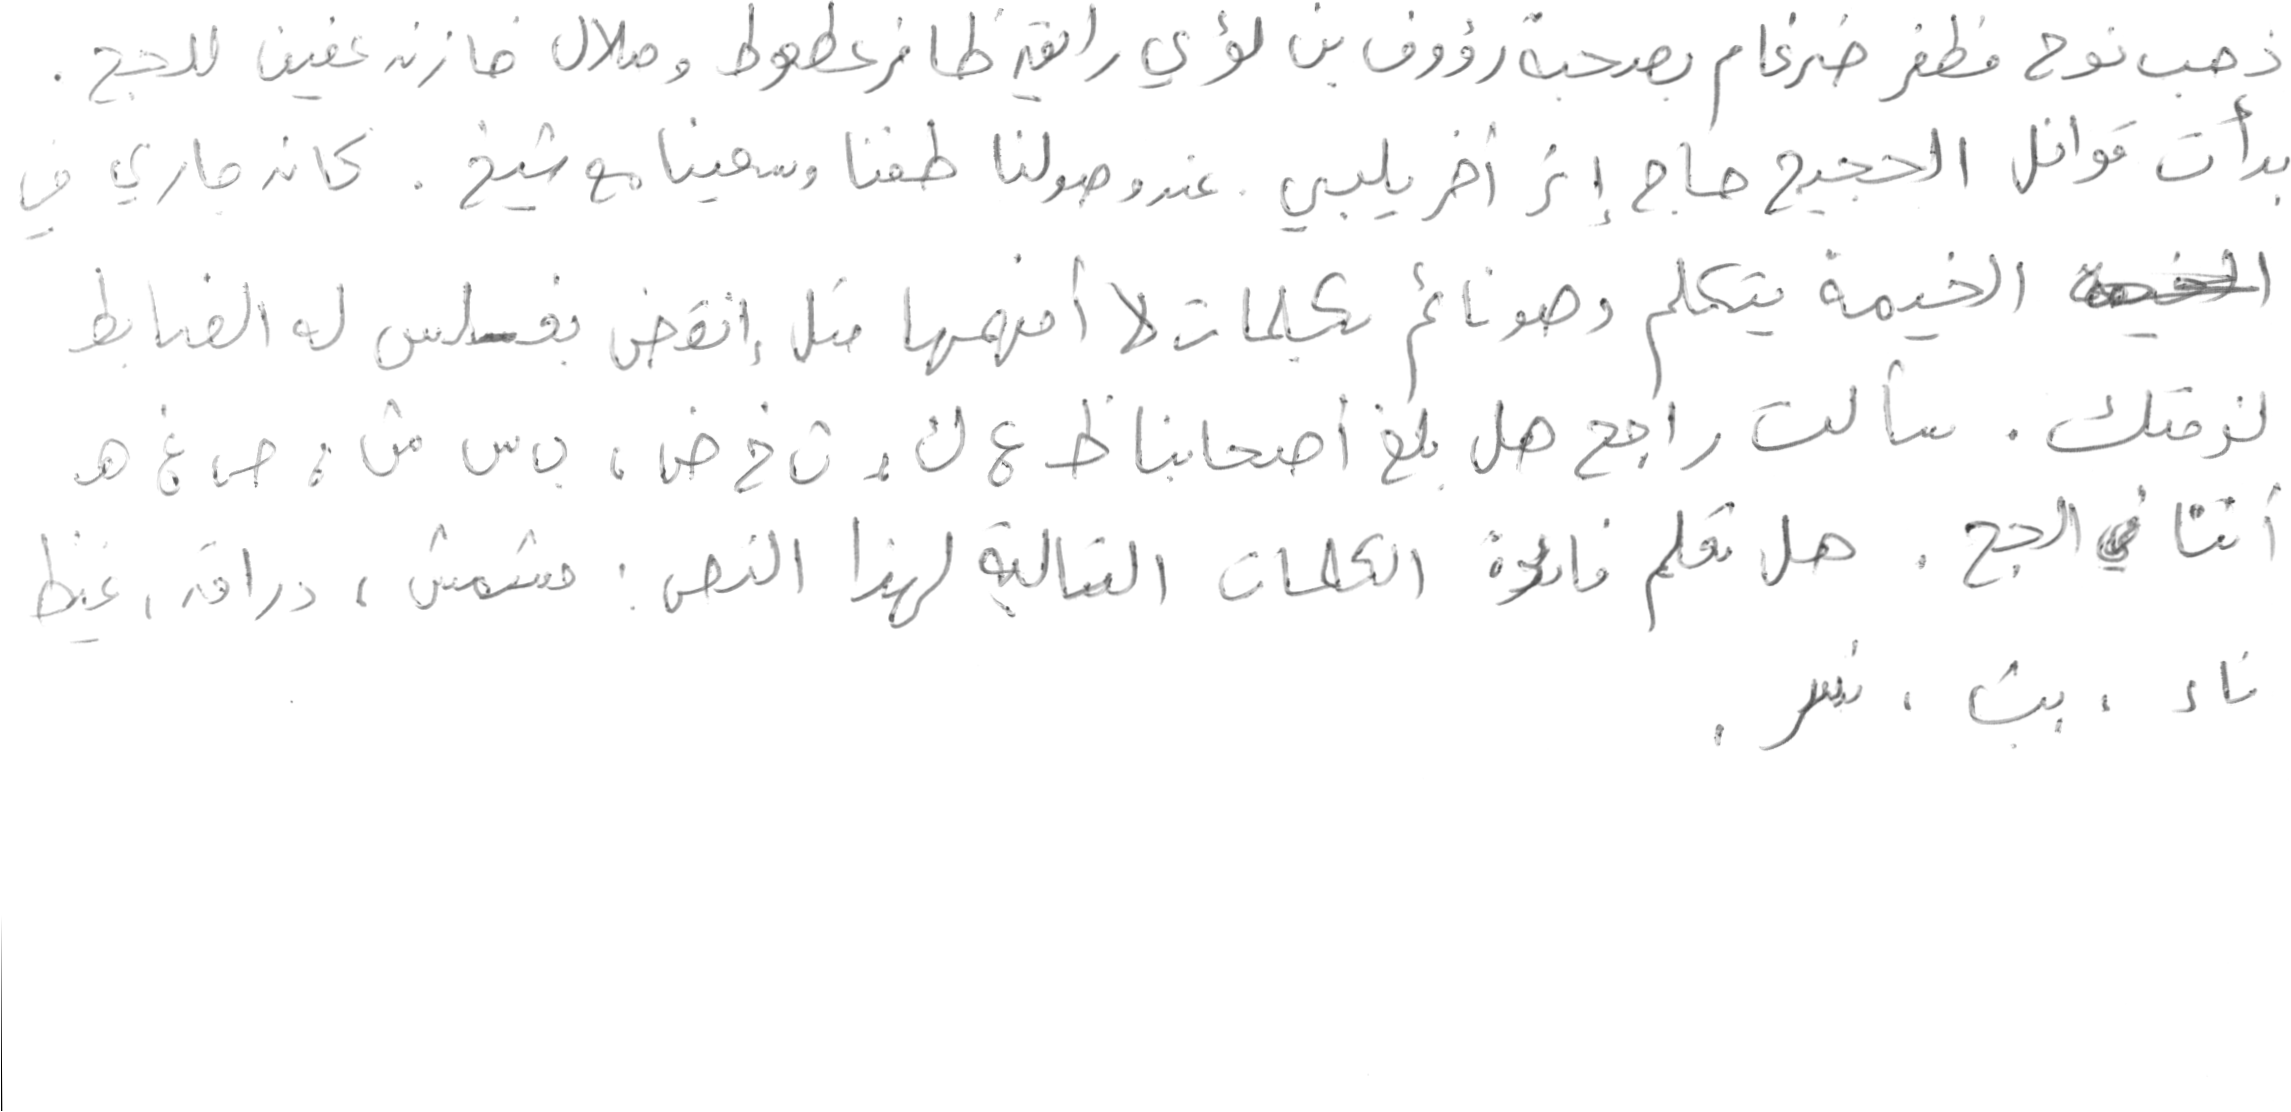 ذهب نوح مظفر ضرغام بصحبة رؤوف بن لؤي رافقه ظافر عطعوط وهلال خازن عفيف للحج .
بدأت قوافل الحجيج حاج إثر أخر يلبي . عند وصولنا طفنا وسعينا مع شيخ . كان جاري في
الخيمة يتكلم وهو نائم بكلمات لا أفهمها مثل إنقض بفسلس له الضابط
لزمتك . سألت راجح هل بلغ أصحابنا ظ ع ك ء ث خ ض ، ب س ش ، ص غ هـ
أننا في الحج . هل تعلم فائدة الكلمات التالية لهذا النص : مشمش ، دراق ، غيظ
ناء ، بث ، .